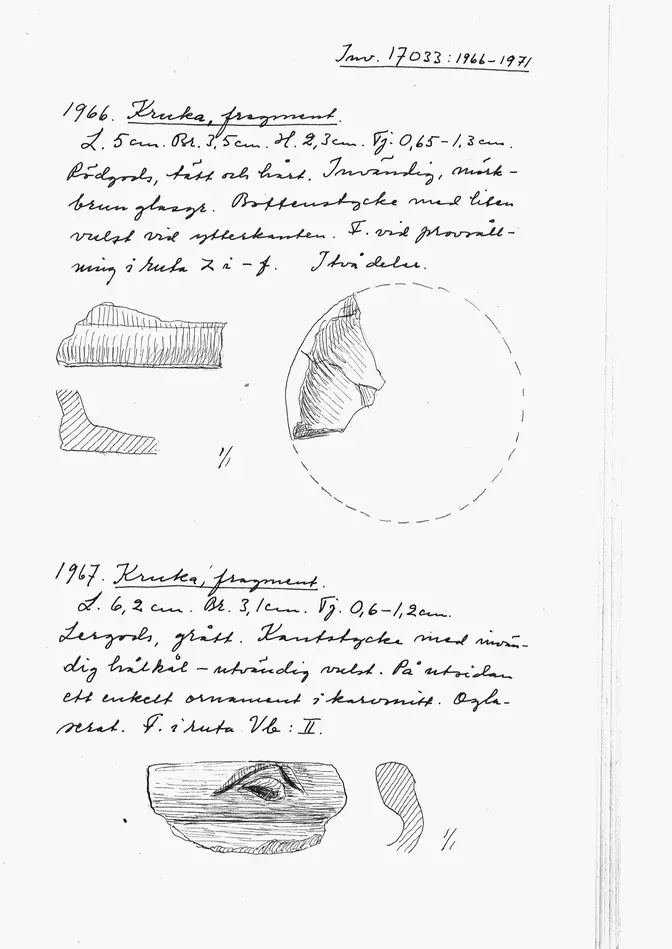 Inv. 17033:1966-1971
1966. Kruka, fragment.
L. 5 cm. Br. 3,5 cm. H. 2,3 cm. Tj. 0,65-1,3 cm.
Rödgods, tätt och hårt. Invändig, mörk-
brun glasyr. Bottenstycke med liten
vulst vid ytterkanten. F. vid provsåll-
ning i ruta Z i-f. I två delar.
1/1
1967. Kruka, fragment.
L. 6,2 cm. Br. 3,1 cm. Tj. 0,6-1,2 cm.
Lergods, grått. Kantstycke med invän-
dig hålkäl - utvändig vulst. På utsidan
ett enkelt ornament i karvsnitt. Ogla-
serat. F. i ruta Vb : II.
1/1